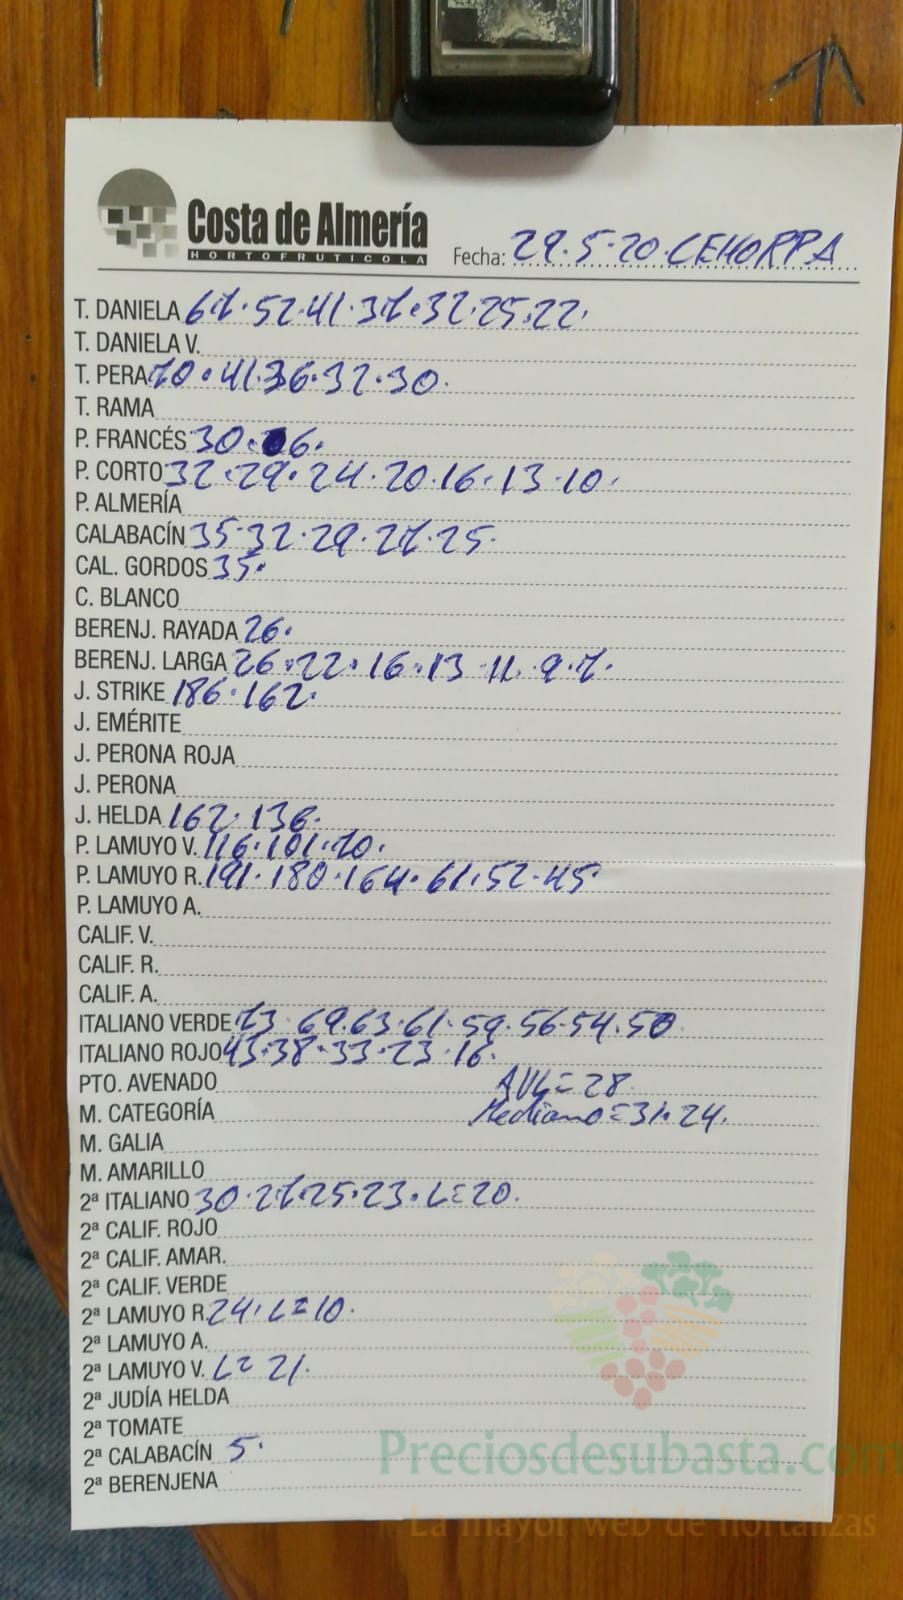 Costa de Almería
HORTOFRUTICOLA
Fecha: 29.5.20.CEHORPA
T. DANIELA 67.52.41.37.32.25.22.
T. DANIELA V.
T. PERA 70.41.36.32.30.
T. RAMA
P. FRANCÉS 30. 6.
P. CORTO 32.29.24.20.16.13.10.
P. ALMERÍA
CALABACÍN 35.32.29.27.25.
CAL. GORDOS 35.
C. BLANCO
BERENJ. RAYADA 26.
BERENJ. LARGA 26.22.16.13.11.9.7.
J. STRIKE 186.162.
J. EMÉRITE
J. PERONA ROJA
J. PERONA
J. HELDA 162.136.
P. LAMUYO V. 116.101.70.
P. LAMUYO R. 191.180.164.61.52.45.
P. LAMUYO A.
CALIF. V.
CALIF. R.
CALIF. A.
ITALIANO VERDE 73.69.63.61.59.56.54.50
ITALIANO ROJO 43.38.33.23.16.
PTO. AVENADO AVE=28.
M. CATEGORÍA Mediano=31.24.
M. GALIA
M. AMARILLO
2ª ITALIANO 30.27.25.23.L=20.
2ª CALIF. ROJO
2ª CALIF. AMAR.
2ª CALIF. VERDE
2ª LAMUYO R. 24.L=10.
2ª LAMUYO A.
2ª LAMUYO V. L=21.
2ª JUDÍA HELDA
2ª TOMATE
2ª CALABACÍN 5.
2ª BERENJENA
Preciosdesubasta.com
La mayor web de hortalizas